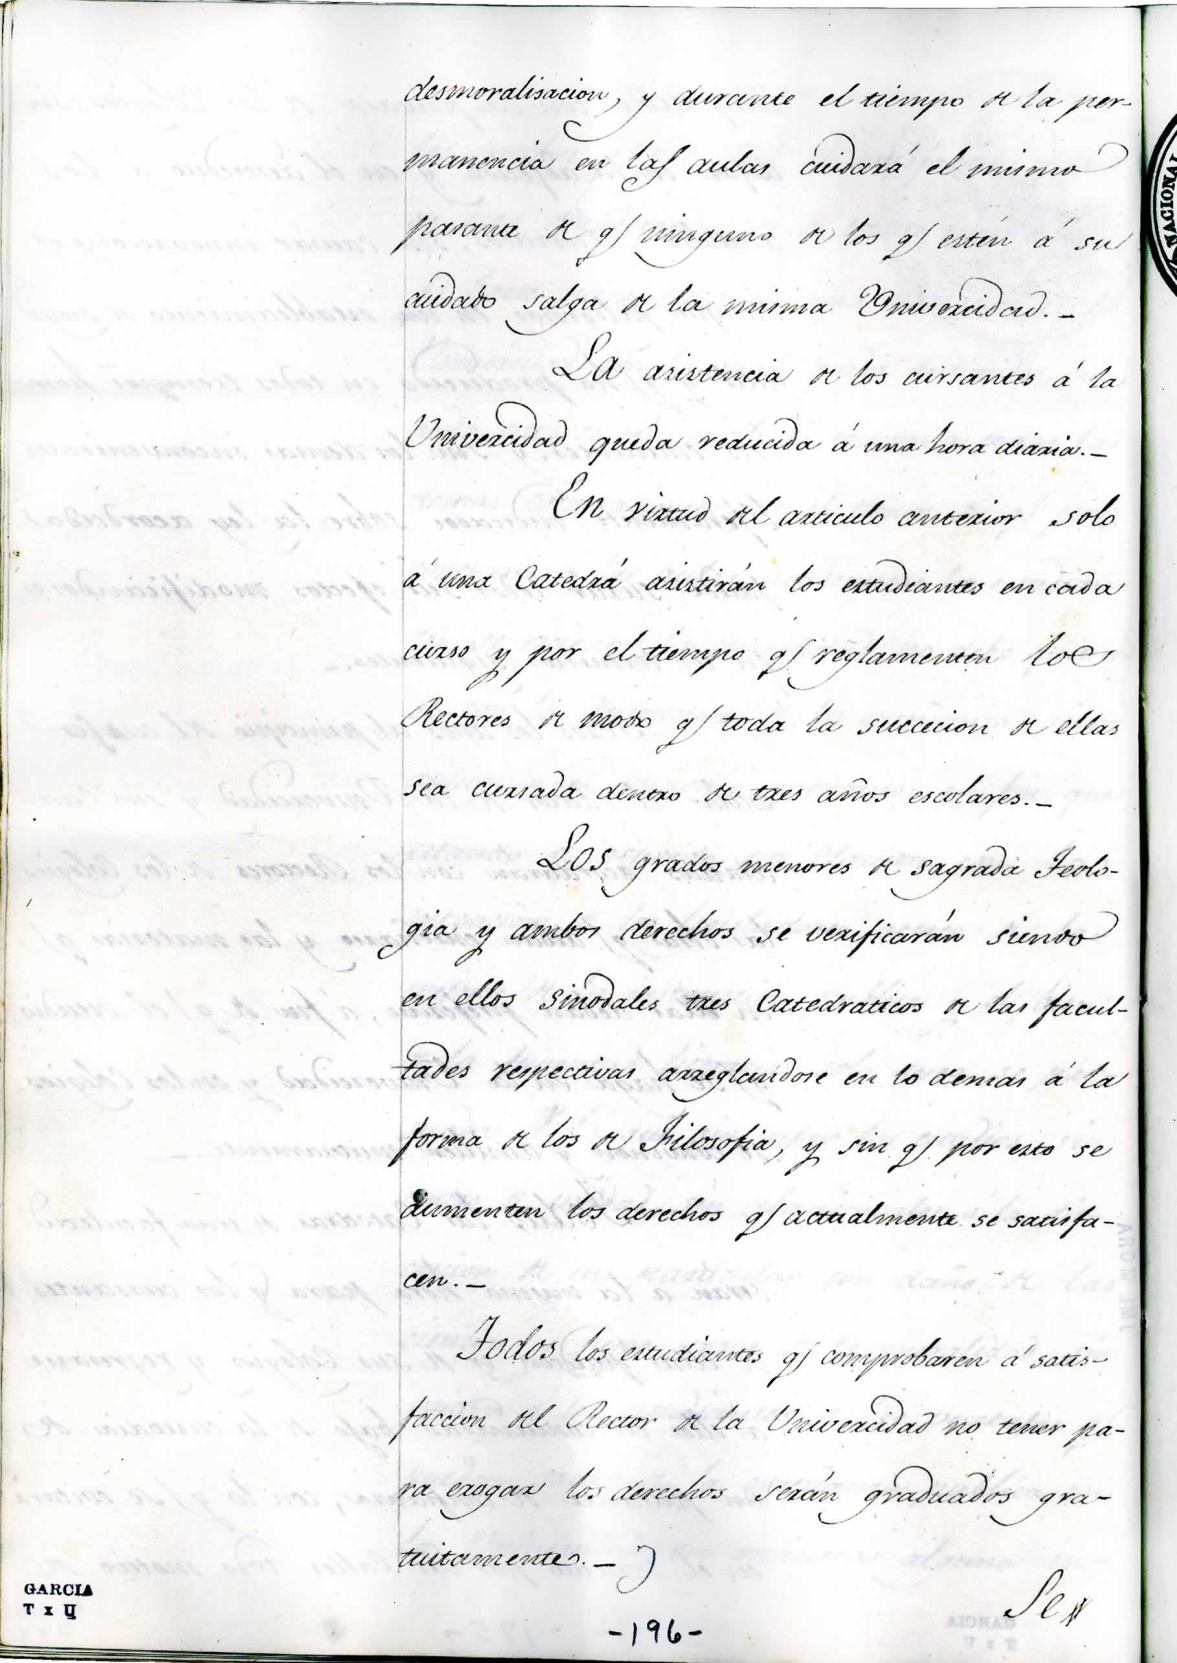 desmoralisacion, y durante el tiempo de la per-
manencia en las aulas cuidará el mismo
pasante de q/ ninguno de los q/ estén á su
cuidado salga de la misma Univercidad. _
La asistencia de los cursantes á la
Univercidad queda reducida á una hora diaria. _
En virtud del articulo anterior solo
á una Catedrá asistirán los estudiantes en cada
curso y por el tiempo q/ reglamenten los
Rectores de modo q/ toda la succecion de ellas
sea cursada dentro de tres años escolares. _
Los grados menores de sagrada Teolo-
gia y ambos derechos se verificarán siendo
en ellos Sinodales tres Catedraticos de las facul-
tades respectivas arreglandose en lo demas á la
forma de los de Filosofia, y sin q/ por esto se
aumenten los derechos q/ actualmente se satisfa-
cen. _
Todos los estudiantes q/ comprobaren á satis-
faccion del Rector de la Univercidad no tener pa-
ra erogar los derechos serán graduados gra-
tuitamente. _
Se
-196-
GARCIA
T x U
NACIONAL